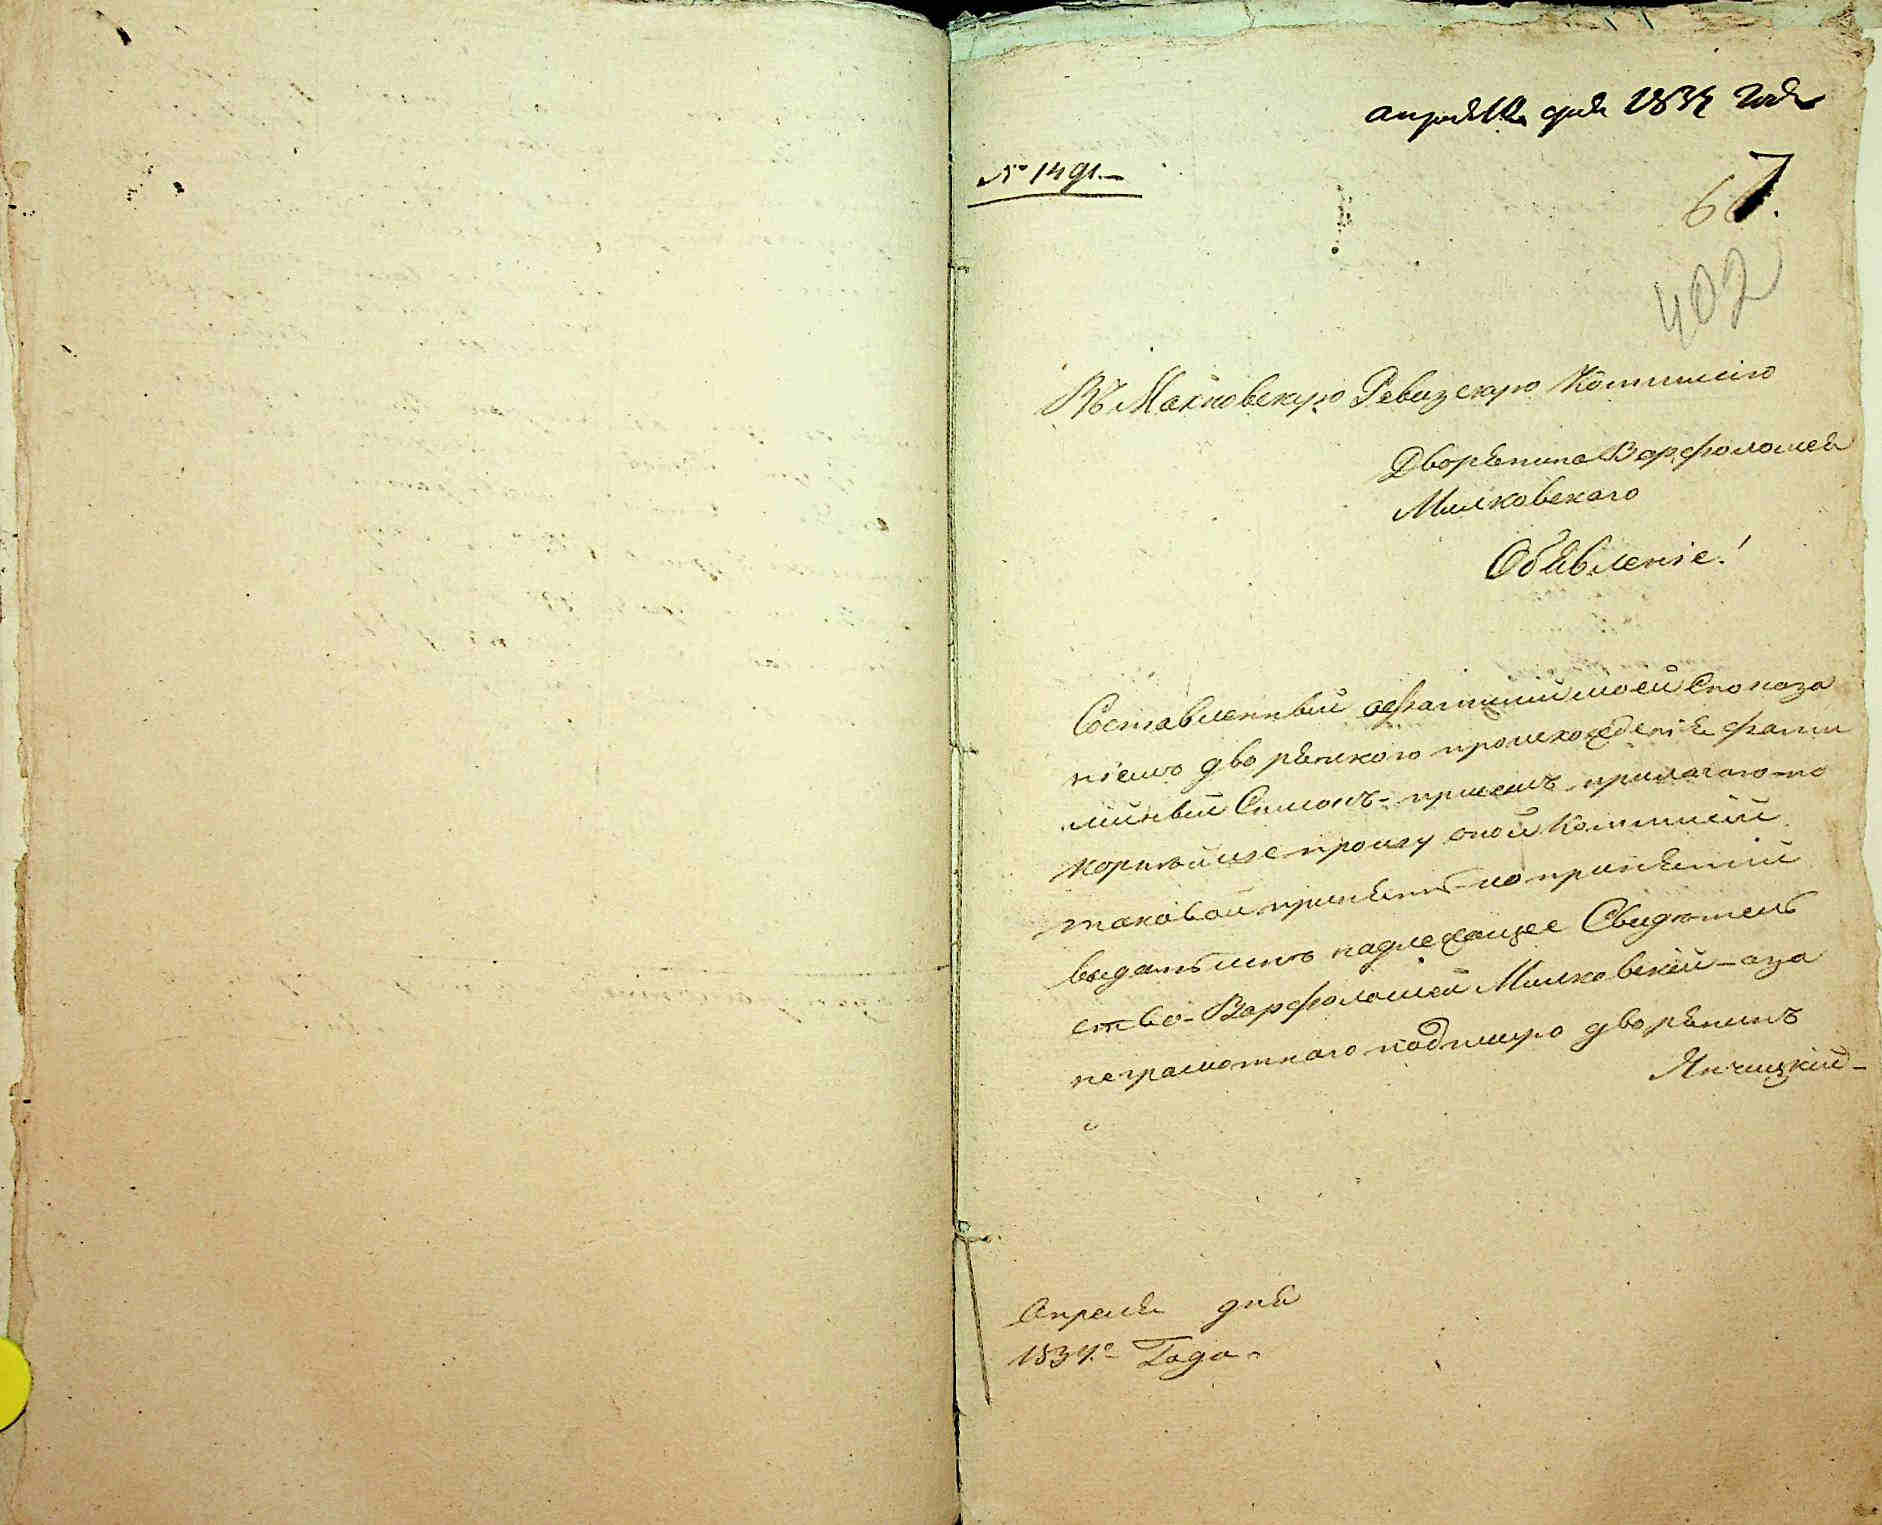 апреля 10 дня 1834 года
№ 1491.—
67.
402
Въ Махновскую Ревизскую Коммисію
Дворянина Варфоломея
Милковскаго
Объявленіе!
Составленный о фамиліи моей спо показа
ніемъ дворянского происхожденія фами
лійный Списокъ - присемъ прилагаю - по
корнѣйше прошу оной Коммисіи
таковой принять - по принятіи
выдать мнѣ надлежащее Свидѣтель
ство - Варфоломей Милковскій - а за
неграмотнаго подпишу дворянинъ
Янчицкій -
Апреля дня
1834го Года.